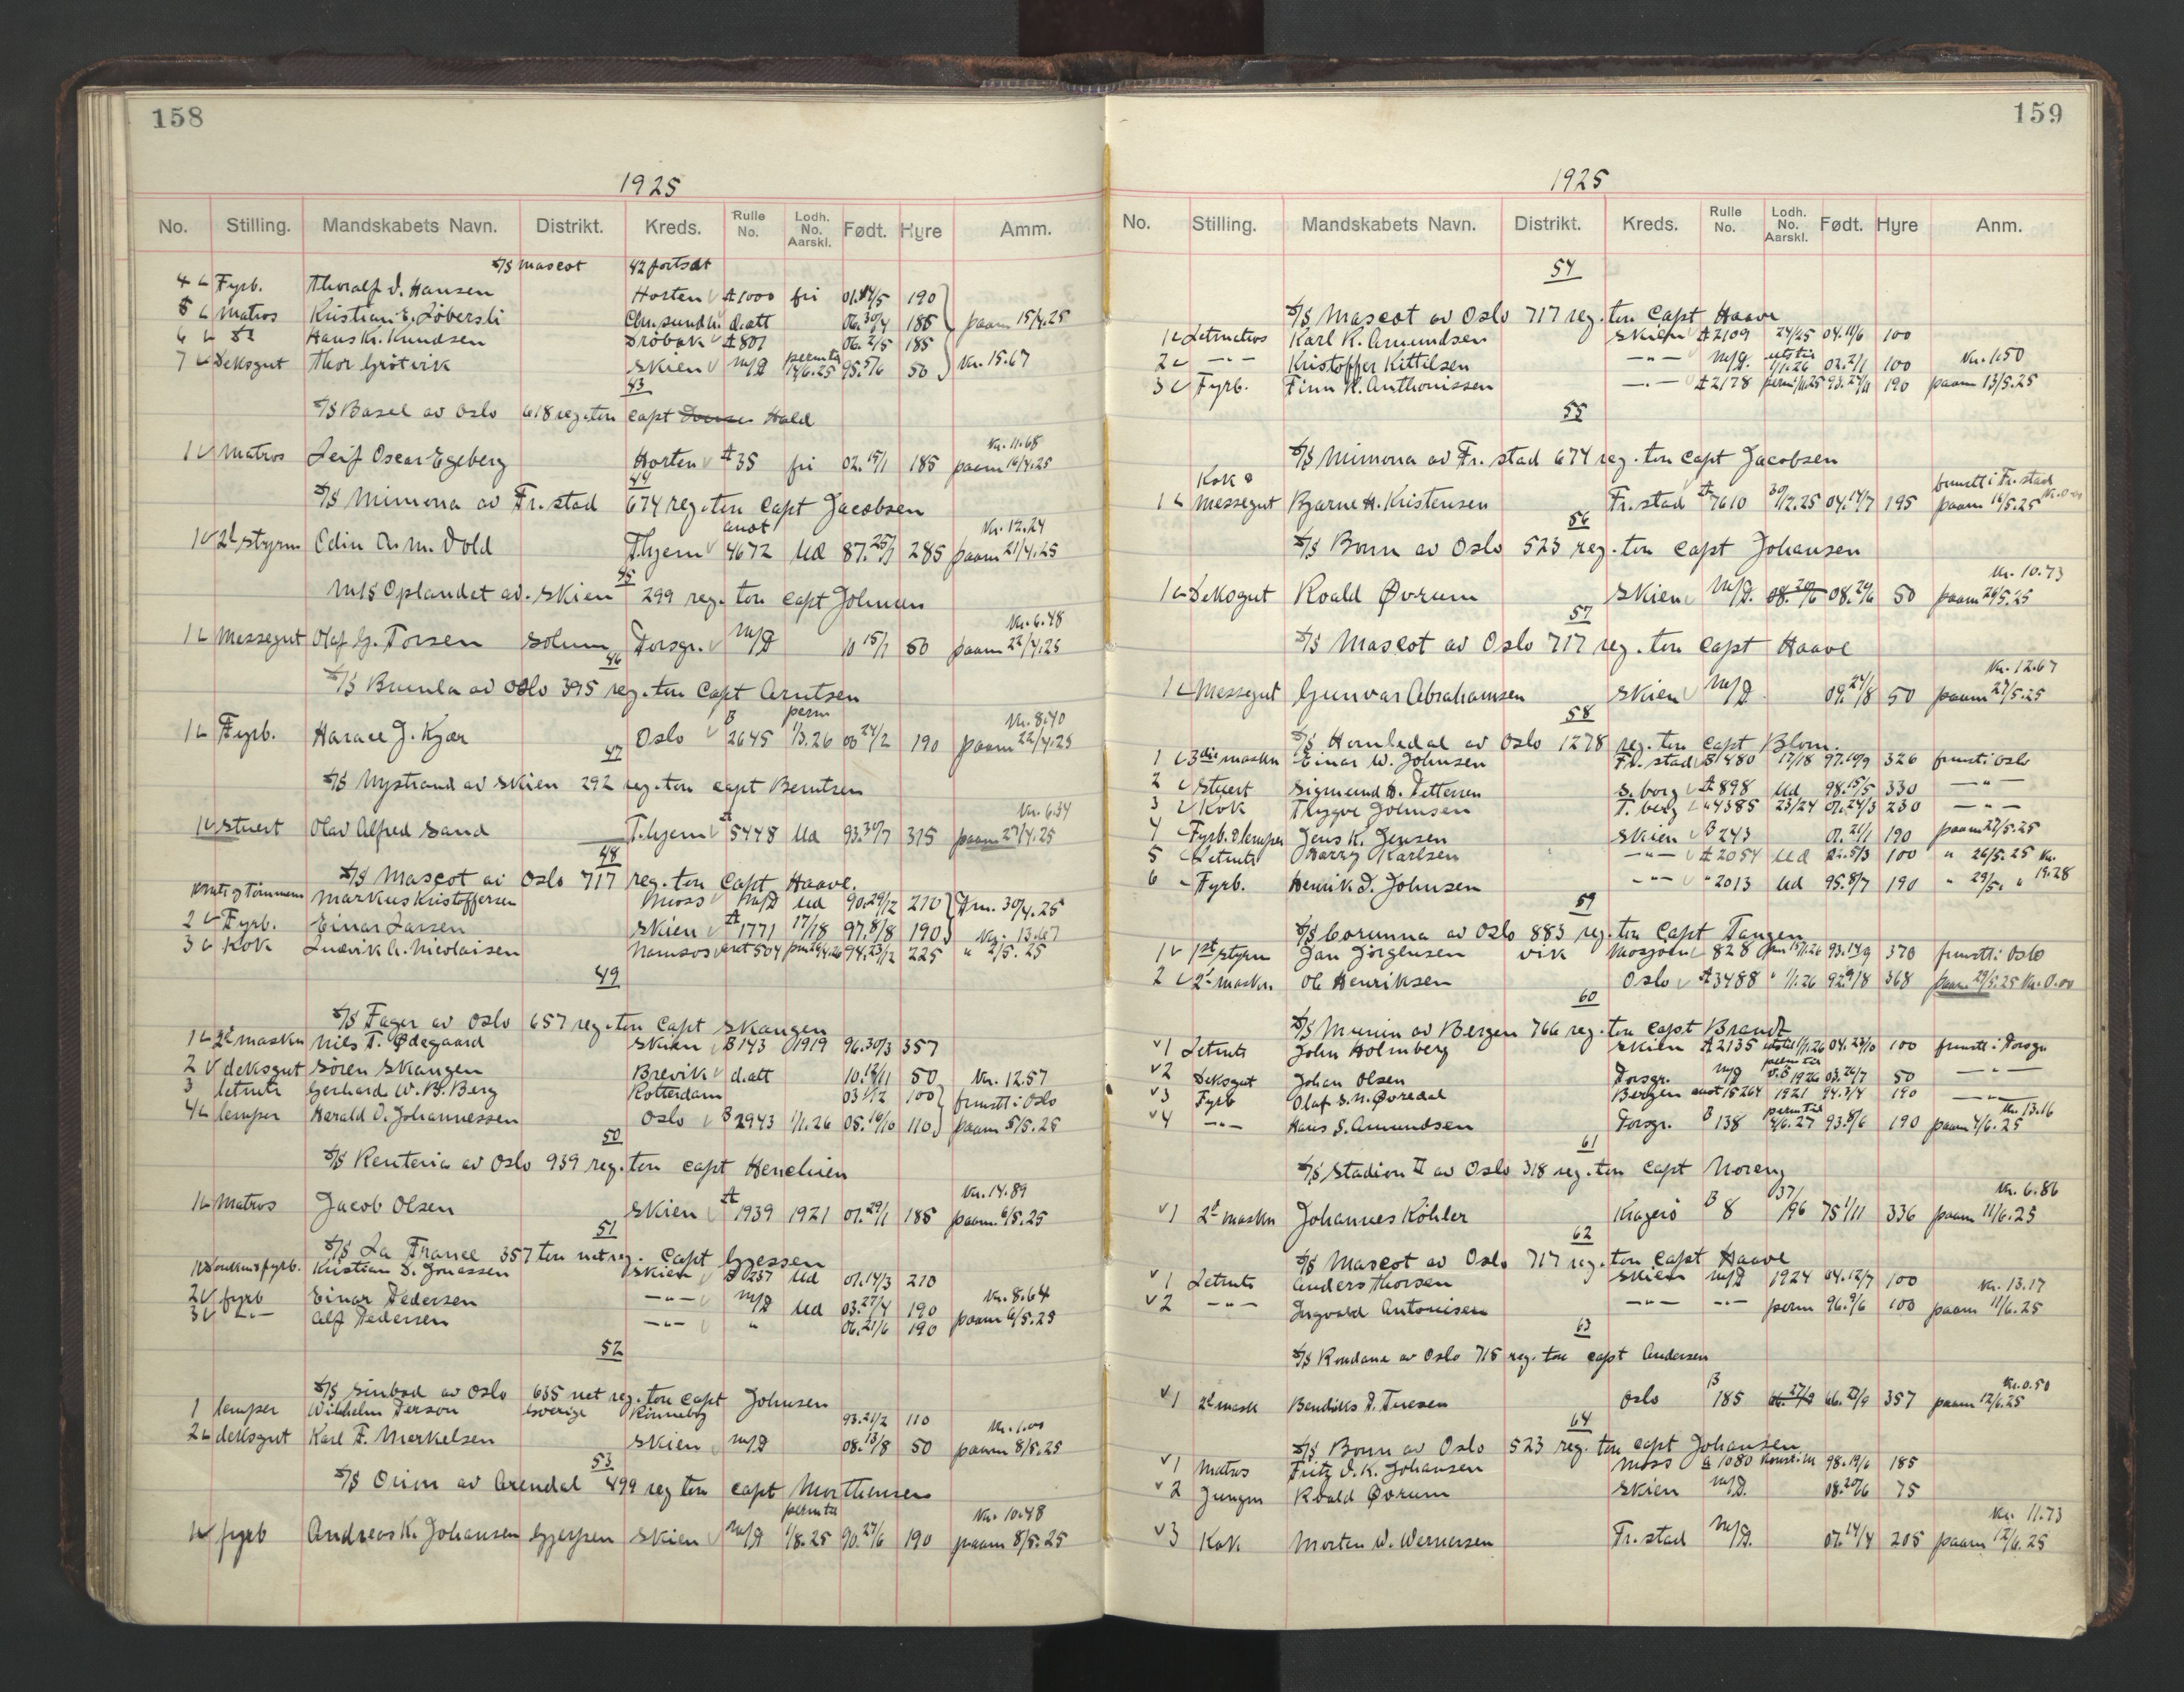 158
1925
No. Stilling. Mandskabets Navn. Distrikt. Kreds. Rulle No. Lodh. No. Aarskl. Født. Hyre Amm.
S/S Mascot 42 fortsat
4 Fyrb. Thoralf J. Hansen Horten A 1000 fri 01.14/5 190
5 Matros Kristian E. Löbersli Chr.sund N. d.att 06.30/4 185 paam 15/4.25
6 Do Hans Kr. Knudsen Dröbak A 801 06.2/5 185
7 Deksgut Thor Grötvik Skien M/D perm til 14/6.25 95.5/6 50 Kr. 15.67
43
S/S Basel av Oslo 618 reg. ton Capt Hald
1 Matros Leif Oscar Egeberg Horten A 35 fri 02.15/1 185 Kr. 11.68 paam 16/4.25
44
S/S Mimona av Fr.stad 674 reg. ton Capt Jacobsen
1 2d styrm Edin A. M. Vold T.hjem anot 4672 Ud 87.25/1 285 Kr. 12.24 paam 21/4.25
45
M/S Oplandet av Skien 299 reg. ton Capt Johnsen
1 Messegut Olaf G. Torsen Solum Porsgr. M/D 10 15/1 50 Kr. 6.48 paam 22/4.25
46
S/S Brunla av Oslo 395 reg. ton Capt Arntsen
1 Fyrb. Harace J. Kjær Oslo B 2645 perm 1/3.26 00 24/2 190 Kr. 8.40 paam 22/4.25
47
S/S Nystrand av Skien 292 reg. ton Capt Berntsen
1 Stuert Olav Alfred Sand T.hjem A 5448 Ud 93.30/7 315 Kr. 6.34 paam 27/4.25
48
S/S Mascot av Oslo 717 reg. ton Capt Haave.
Mats og Tømmerm Markus Kristoffersen Moss M/D Ud 90.29/12 210 Anm. 30/4.25
2 Fyrb. Einar Larsen Skien A 1771 17/18 97.8/8 190 Kr. 13.67
3 Kok Ludvik A. Nicolaisen Namsos anot 504 94.23/12 225 " 2/5.25
49
S/S Fager av Oslo 657 reg. ton Capt Skaugen
1 2d maskn Nils T. Ødegaard Skien B 143 1919 96.30/3 357
2 deksgut Sören Skaugen Brevik d.att 10.12/11 50 Kr. 12.57
3 letmts Gerhard W. B. Berg Rotterdam 03 1/12 100 frmstt i Oslo
4 lemper Harald O. Johannessen Oslo B 2943 1/1.26 05.16/10 110 paam 5/5.25
50
S/S Renteria av Oslo 939 reg. ton Capt Henchien
1 Matros Jacob Olsen Skien A 1939 1921 01.29/1 185 Kr. 14.89 paam 6/5.25
51
S/S La France 357 ton net reg. Capt Gjessen
1 Donkeyfyrb. Kristian S. Jonassen Skien B 237 Ud 01.14/3 210
2 fyrb Einar Pedersen —"— M/D Ud 03.27/4 190 Kr. 8.64
3 —"— Alf Pedersen —"— " 06.21/6 190 paam 6/5.25
52
S/S Sinbad av Oslo 635 net reg. ton Capt Johnsen
1 lemper Wilhelm Person Sverige Rönneby 93.21/2 110
2 deksgut Karl F. Merkelsen Skien M/D 08.13/8 50 Kr. 1.00 paam 8/5.25
53
S/S Orion av Arendal 499 reg ton Capt Morthensen
1 fyrb Andreas K. Johansen Gjerpen Skien M/D perm til 1/8.25 90.27/6 190 Kr. 10.48 paam 8/5.25
159
1925
No. Stilling. Mandskabets Navn. Distrikt. Kreds. Rulle No. Lodh. No. Aarskl. Født. Hyre Anm.
54
S/S Mascot av Oslo 717 reg. ton Capt Haave
1 Letmatros Karl K. Amundsen Skien A 2109 24/25 04.11/6 100
2 —"— Kristoffer Kittilsen —"— M/D. uts til 1/1.26 02.2/1 100 Kr. 1.50
3 Fyrb. Finn K. Anthonissen —"— A 2178 93.24/11 190 paam 13/5.25
55
S/S Mimona av Fr.stad 674 reg. ton Capt Jacobsen
1 Kok & Messegut Bjarne H. Kristensen Fr.stad A 7610 30/12.25 04.14/7 195 frmstt i Fr.stad paam 16/5.25 Kr. 0.00
56
S/S Bonn av Oslo 523 reg. ton Capt Johansen
1 Deksgut Roald Øvrum Skien M/D. 08.20/6 08.20/6 50 Kr. 10.73 paam 26/5.25
57
S/S Mascot av Oslo 717 reg. ton Capt Haave
1 Messegut Gunvar Abrahamsen Skien M/D. 09.24/8 50 Kr. 12.67 paam 27/5.25
58
S/S Homledal av Oslo 1278 reg. ton Capt Blom.
1 3die maskn Einar W. Johnsen Fr.stad B 1480 17/18 97.10/9 326 frmst i Oslo
2 Stuert Sigmund B. Pettersen S.borg A 898 Ud 98.15/5 330 —"—
3 Kok Trygve Johnsen T.berg " 4385 23/24 01.24/3 230 —"—
4 Fyrb. & lemper Jens K. Jensen Skien B 243 01.21/1 190 paam 27/5.25
5 Letmts Harry Karlsen —"— A 2054 Ud 02.5/3 100 " 26/5.25 Kr.
6 Fyrb. Henrik J. Johnsen —"— " 2013 Ud 95.8/7 190 " 29/5. " 19.28
59
S/S Corunna av Oslo 883 reg. ton Capt Tangen
1 1st styrm Jan Jörgensen Vik Mosjöen 828 15/1.26 93.14/9 370 frmstt i Oslo
2 2d maskn. Ol Henriksen Oslo A 3488 " 1/1.26 92.9/8 368 paam 29/5.25 Kr. 0.00
60
S/S Munin av Bergen 766 reg. ton Capt Brandt
1 Letmts John Holmberg Skien A 2135 utstil 1/1.26 04.23/10 100 frmstt i Porsgr
2 Deksgut Johan Olsen Porsgr. M/D perm til 1926 03.26/7 50 —"—
3 Fyrb Olaf S. N. Øvredal Bergen anot 15264 1921 94.3/4 190 —"—
4 —"— Hans S. Amundsen Porsgr. B 138 perm til 4/6.27 93.8/6 190 Kr. 13.16 paam 4/6.25
61
S/S Stadion II av Oslo 318 reg. ton Capt Noreng
1 2d maskn Johannes Köhler Kragerö B 8 37/96 75 1/11 336 Kr. 6.86 paam 11/6.25
62
S/S Mascot av Oslo 717 reg. ton Capt Haave
1 Letmts Anders Thorsen Skien M/D 1924 04.12/7 100 Kr. 13.17
2 —"— Ingvald Antonisen —"— —"— perm 96.9/6 100 paam 11/6.25
63
S/S Rondane av Oslo 715 reg. ton Capt Andersen
1 2d mask Bendiks P. Tuesen Oslo B 185 66.27/9 66.23/9 357 Kr. 0.50 paam 12/6.25
64
S/S Bonn av Oslo 523 reg. ton Capt Johansen
1 Matros Fritz J. K. Johansen Moss A 1080 98.19/6 185
2 Jungm Roald Øvrum Skien M/D. 08.20/6 75
3 Kok Morten W. Wernersen Fr.stad M/D. 07.14/4 205 Kr. 11.73 paam 12/6.25